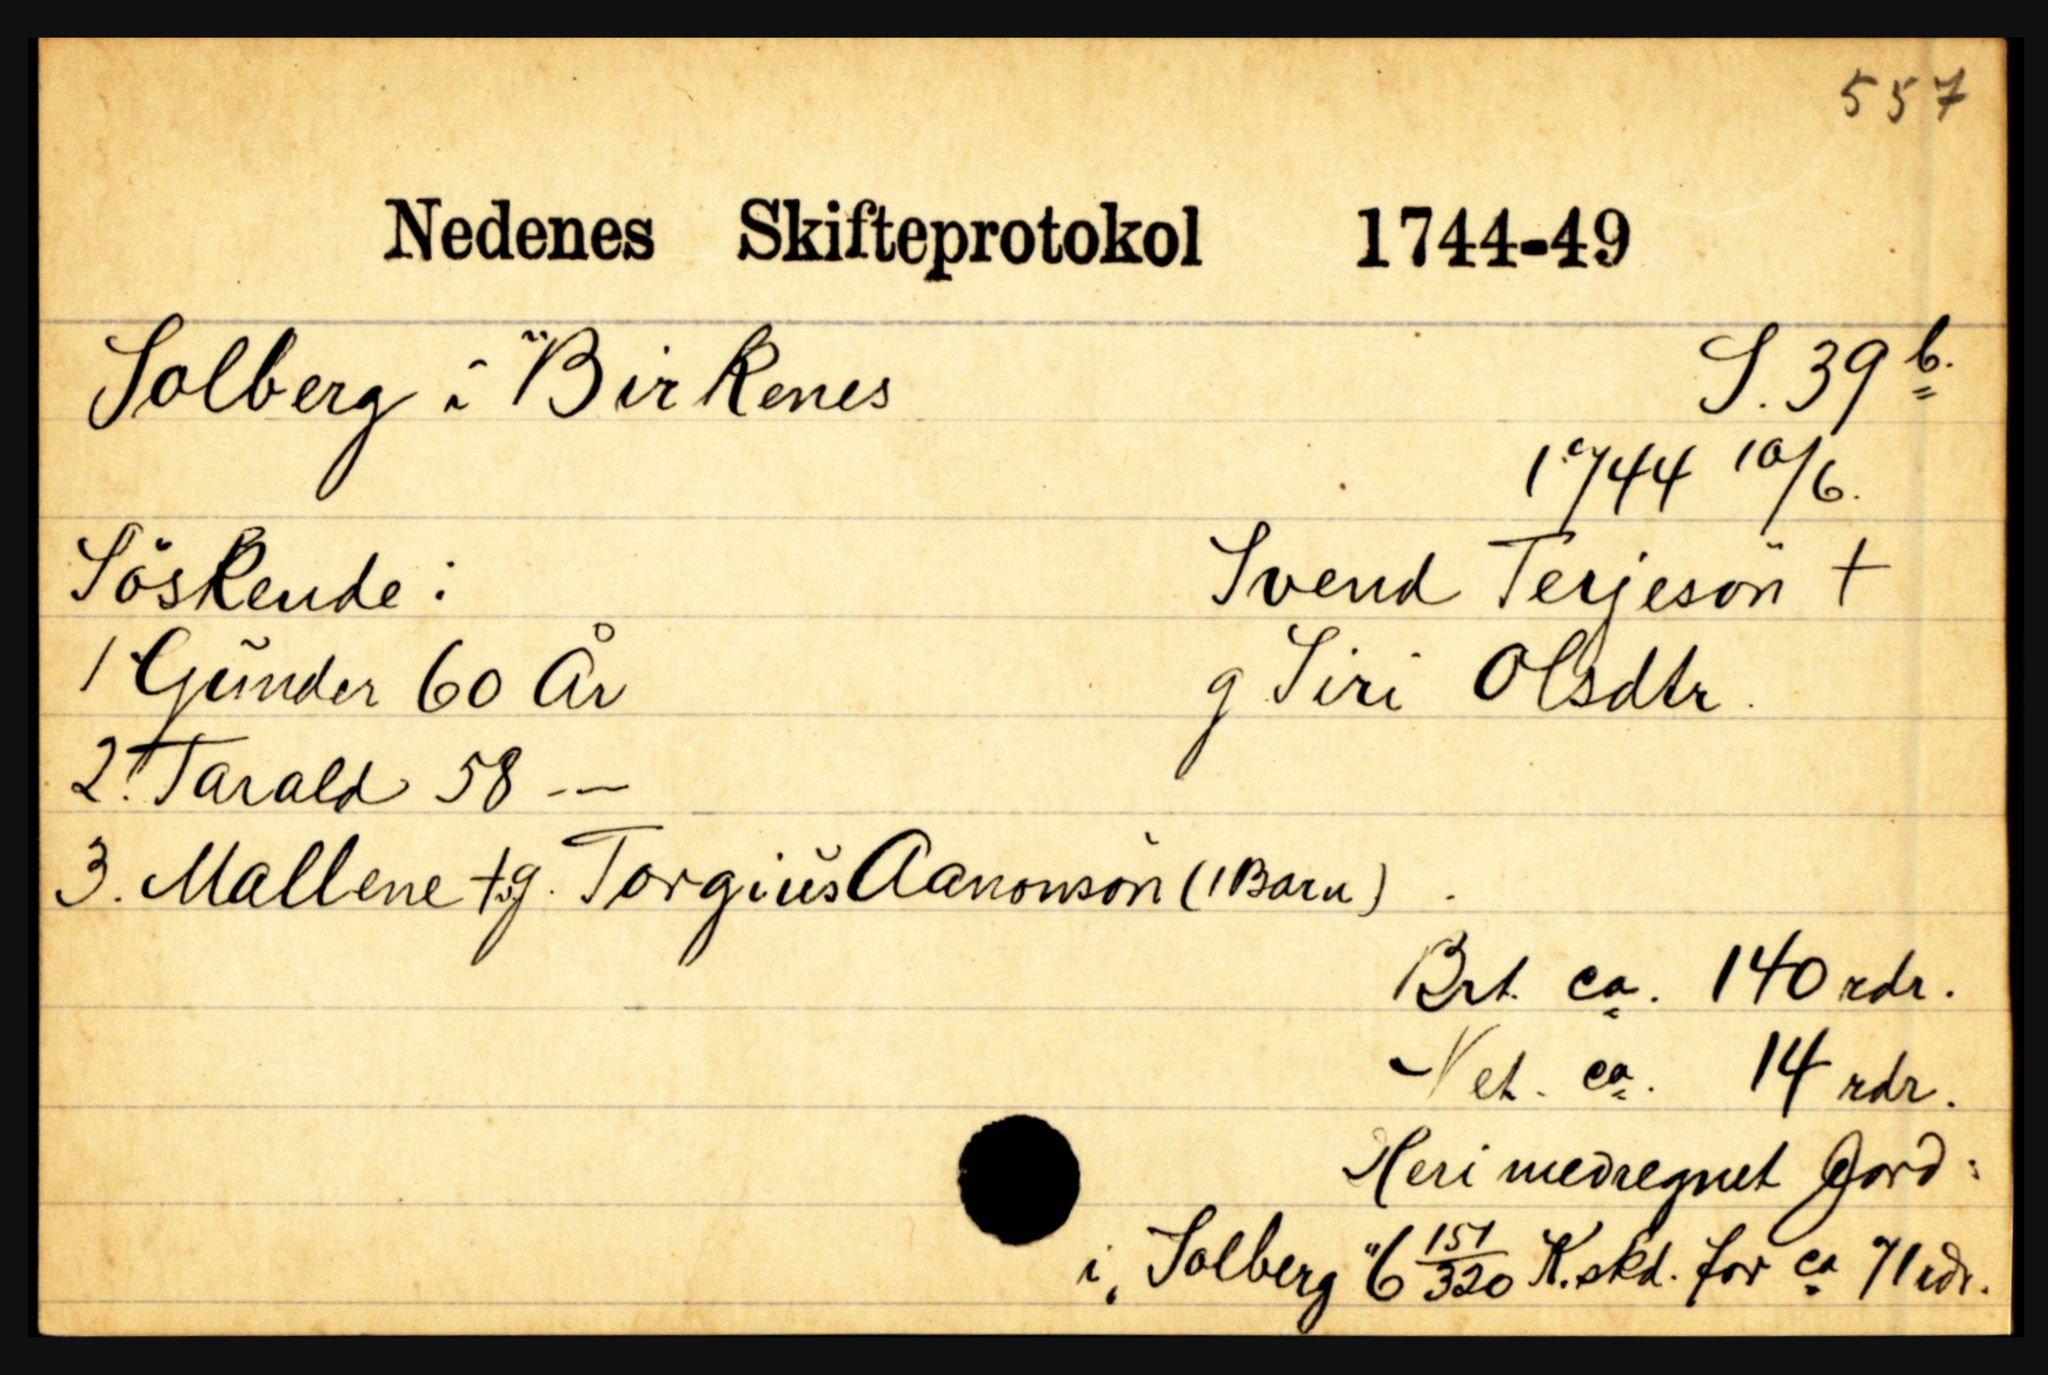 557
Nedenes Skifteprotokol 1744-49
Solberg i "Birkenes S. 39 b.
1744 10/6.
Söskende: Svend Terjesön †
1 Gunder 60 År g Siri Olsdtr.
2. Tarald 58 -—
3. Mallene † g. Torgius Aanonsön (1 Barn).
Brt. ca. 140 rdr.
Net. ca. 14 rdr.
Heri medregnet Jord:
i "Solberg" 6 151/320 K. skd. for ca 71 rdr.